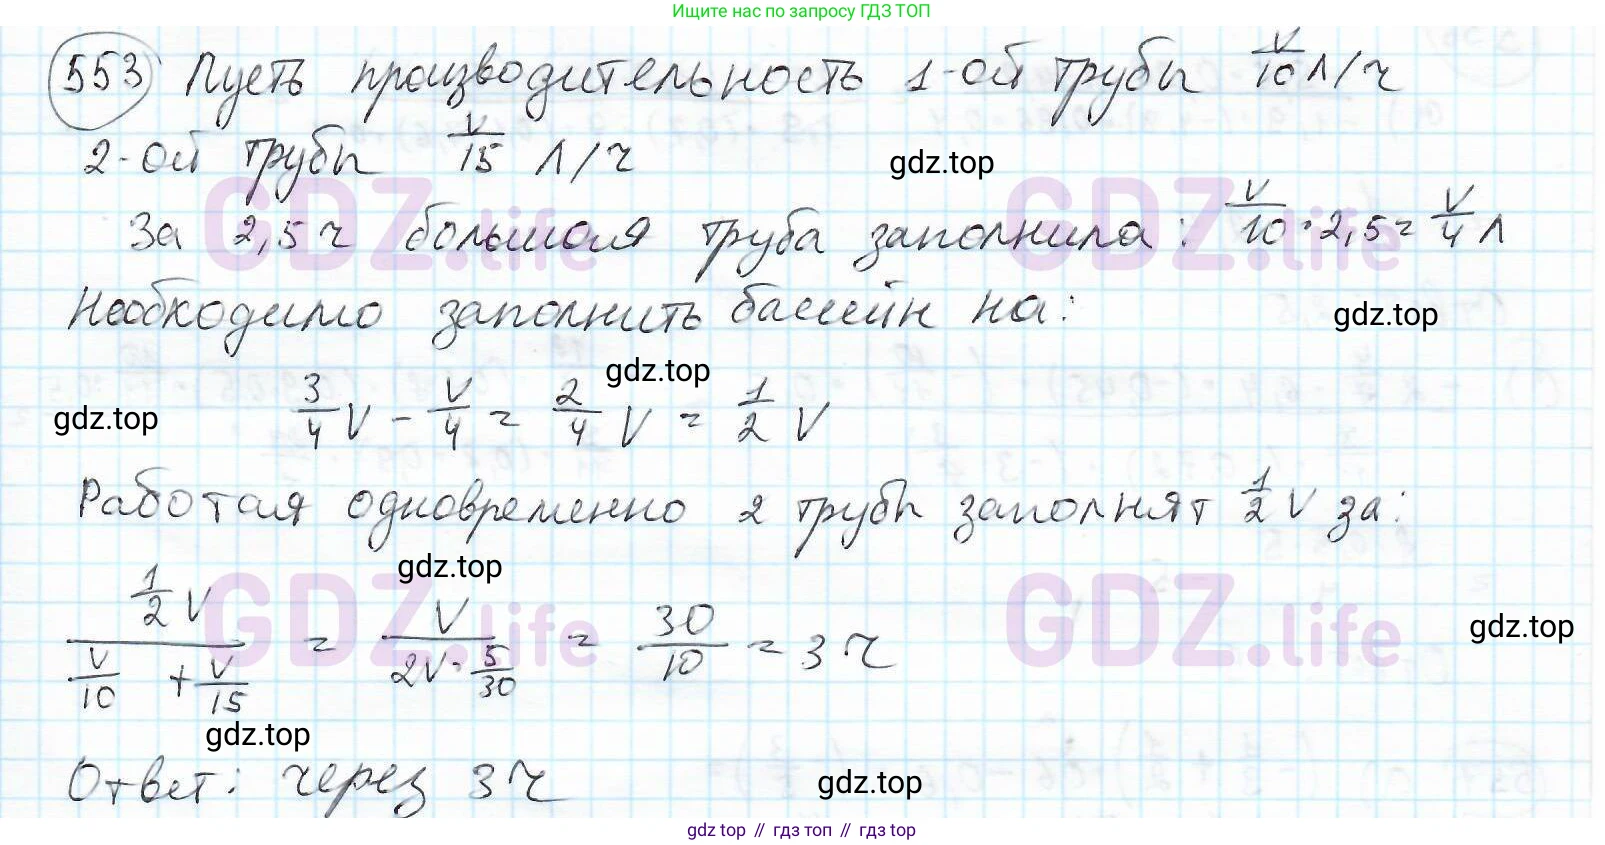 Ищите нас по запросу ГДЗ ТОП
553 Пусть производительность 1-ой трубы V/10 л/ч
2-ой трубы V/15 л/ч
gdz.top
За 2,5 ч большая труба заполнила: V/10 · 2,5 = V/4 л
GDZ.life GDZ.life
Необходимо заполнить бассейн на:
gdz.top
gdz.top
3/4 V - V/4 = 2/4 V = 1/2 V
gdz.top
Работая одновременно 2 трубы заполнят 1/2 V за:
gdz.top
GDZ.life GDZ.life
(1/2 V)/(V/10 + V/15) = V/(2V · 5/30) = 30/10 = 3 ч
gdz.top
gdz.top
Ответ: через 3 ч
gdz.top
gdz top // гдз топ // gdz top